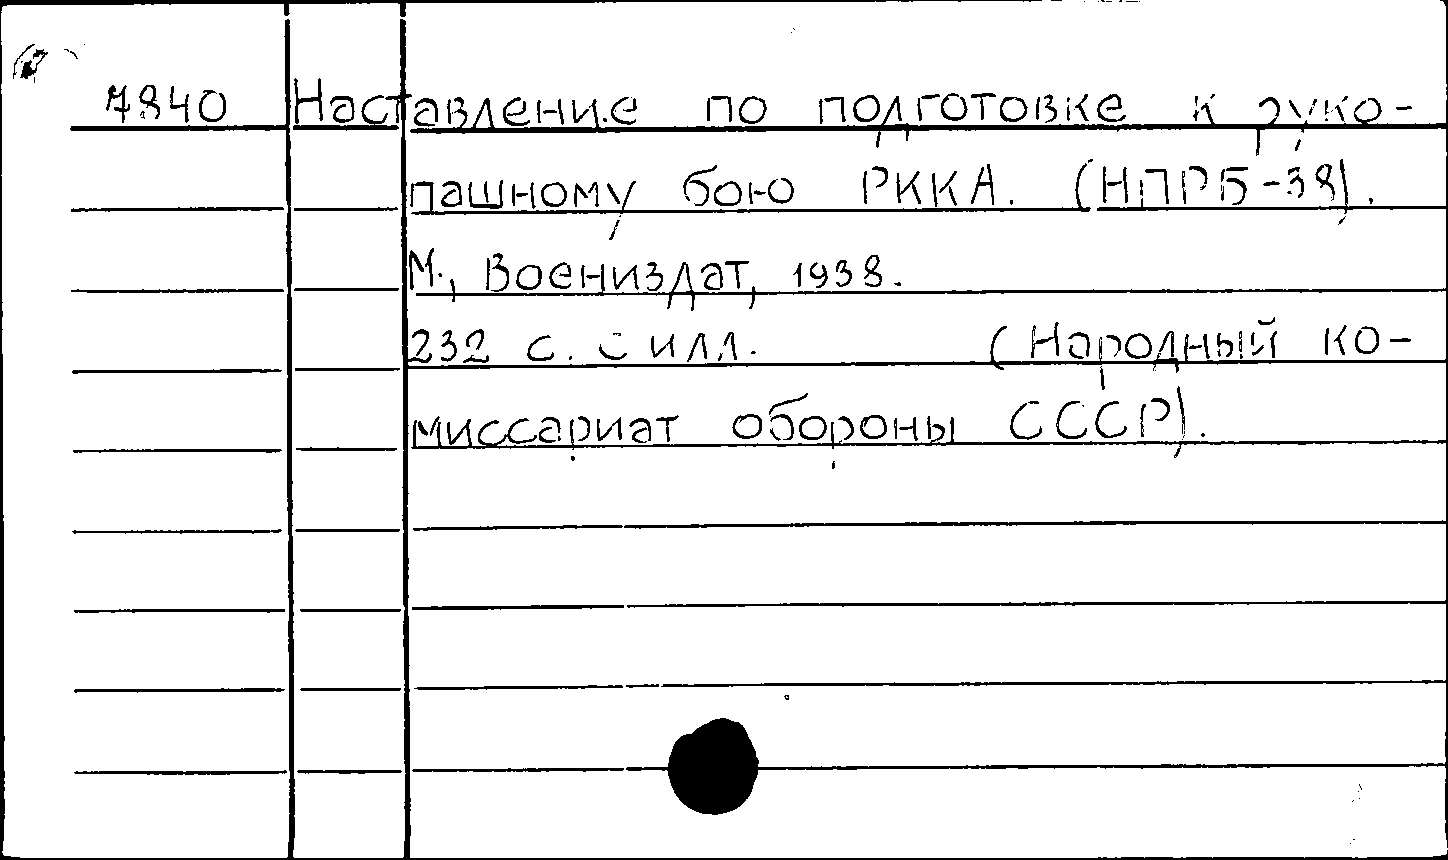 7840 Наставление по подготовке к руко-
пашному бою РККА. (НПРБ-38).
М., Воениздат, 1938.
232 с. с илл. (Народный ко-
миссариат обороны СССР).